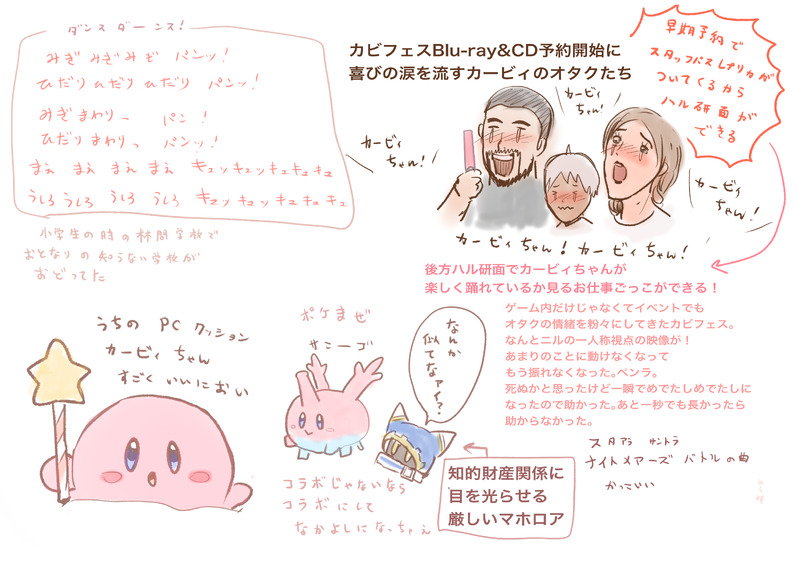 ダンス ダーンス!
みぎ みぎ みぎ パンッ!
ひだり ひだり ひだり パンッ!
みぎまわりー パン!
ひだりまわりっ パンッ!
まえ まえ まえ まえ キュッ キュッ キュッ キュッ
うしろ うしろ うしろ うしろ キュッ キュッ キュッ キュッ
小学生の時の林間学校で
おとなりの知らない学校が
おどってた
カビフェスBlu-ray&CD予約開始に
喜びの涙を流すカービィのオタクたち
早期予約で
スタッフパスレプリカが
ついてくるから
ハル研面が
できる
カービィ
ちゃん!
カービィ
ちゃん!
カービィ
ちゃん!
カービィちゃん!カービィちゃん!
後方ハル研面でカービィちゃんが
楽しく踊れているか見るお仕事ごっこができる!
ゲーム内だけじゃなくてイベントでも
オタクの情緒を粉々にしてきたカビフェス。
なんとニルの一人称視点の映像が!
あまりのことに動けなくなって
もう振れなくなった。ペンラ。
死ぬかと思ったけど一瞬でめでたしめでたしに
なったので助かった。あと一秒でも長かったら
助からなかった。
うちの PC クッション
カービィ ちゃん
すごく いいにおい
ポケまぜ
サニーゴ
なんか
似てなァイ?
コラボじゃないなら
コラボにして
なかよしになっちゃえ
知的財産関係に
目を光らせる
厳しいマホロア
スタアラ サントラ
ナイトメアーズ バトルの曲
かっこいい